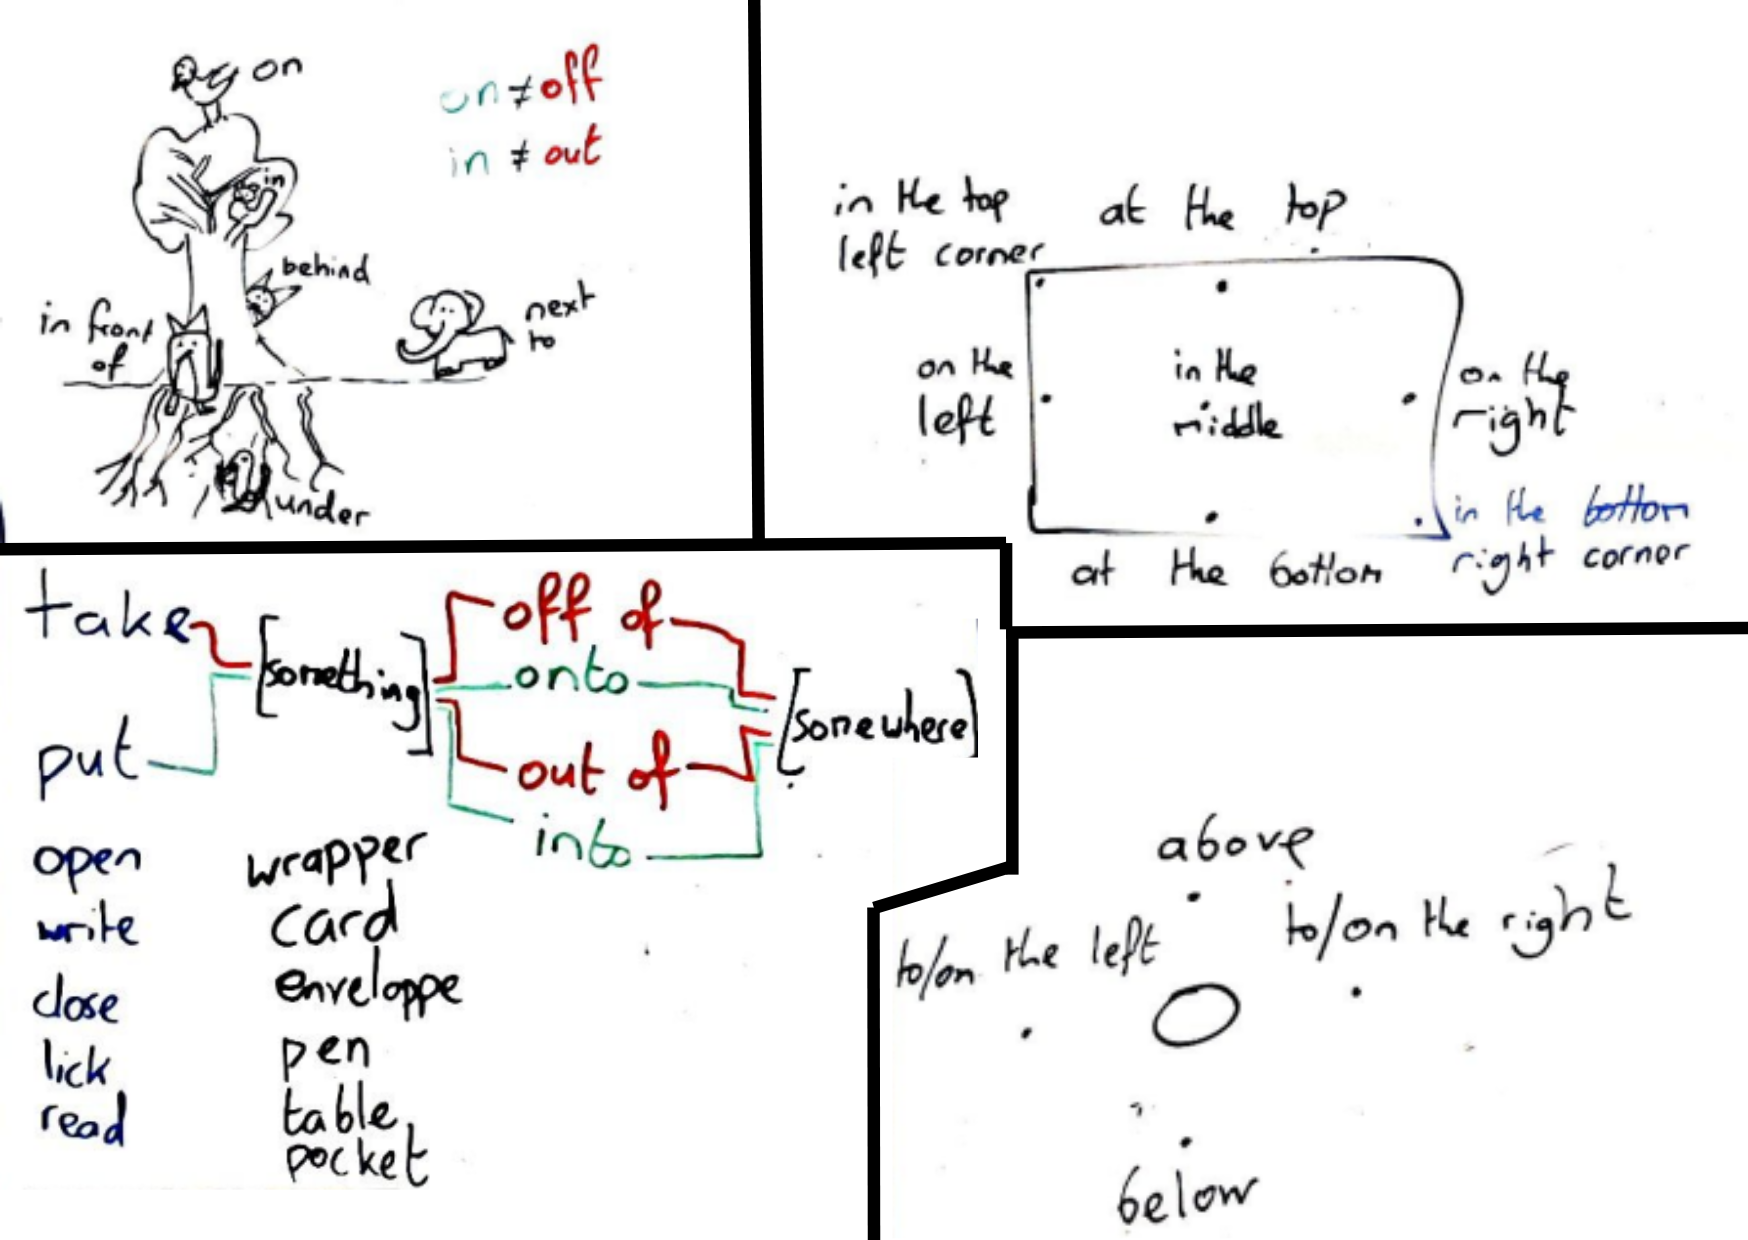 on
on ≠ off
in ≠ out
in
behind
in front
of
next
to
under
in the top
left corner
at the top
on the
left
in the
middle
on the
right
in the bottom
right corner
at the bottom
take
put
[something]
off of
onto
out of
into
[somewhere]
open
write
close
lick
read
wrapper
card
enveloppe
pen
table
pocket
above
to/on the left
to/on the right
below